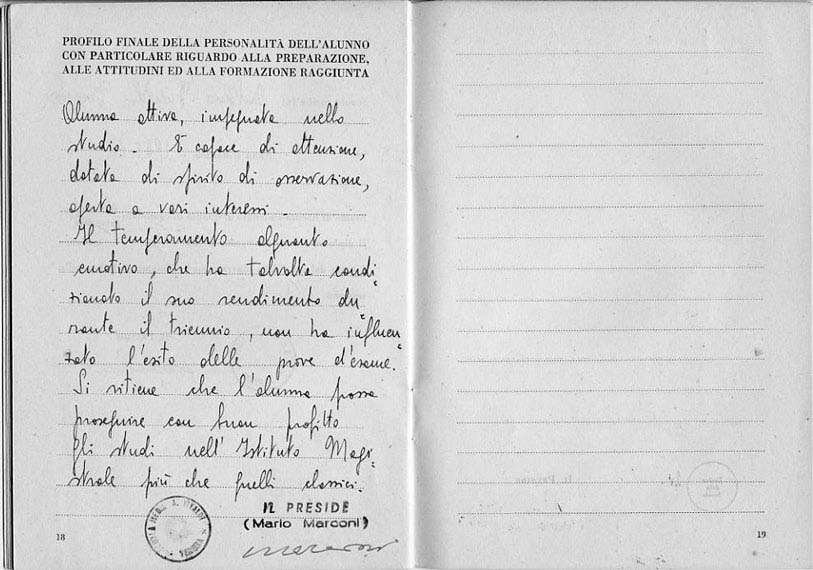 PROFILO FINALE DELLA PERSONALITÀ DELL'ALUNNO
CON PARTICOLARE RIGUARDO ALLA PREPARAZIONE,
ALLE ATTITUDINI ED ALLA FORMAZIONE RAGGIUNTA
Alunna attiva, impegnata nello
studio. È capace di attenzione,
dotata di spirito di osservazione,
aperta a vari interessi.
Il temperamento alquanto
emotivo, che ha talvolta condi
zionato il suo rendimento du
rante il triennio, non ha influen
zato l'esito delle prove d'esame.
Si ritiene che l'alunna possa
proseguire con buon profitto
gli studi nell'Istituto Magi
strale più che quelli classici.
IL PRESIDE
(Mario Marconi)
18
19